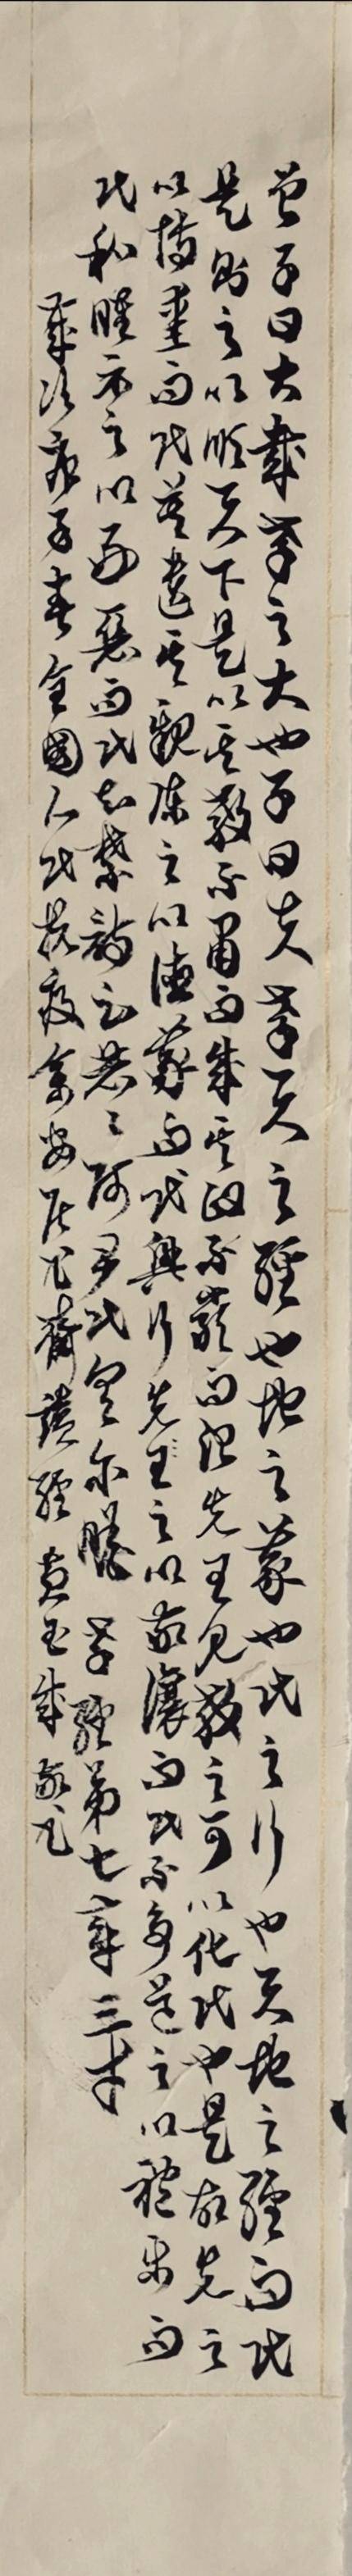 曾子曰大哉孝之大也子曰夫孝天之經也地之義也民之行也天地之經而民
是則之以順天下是以其教不肅而成其政不嚴而治先王見教之可以化民也是故先之
以博愛而民莫遺其親陳之以德義而民興行先王之以敬讓而民不爭導之以禮樂而
民和睦示之以好惡而民知禁詩云赫赫師尹民具爾瞻 孝經第七章三才
歲次庚子春全國人民抗疫余安居齋讀經 玉成敬